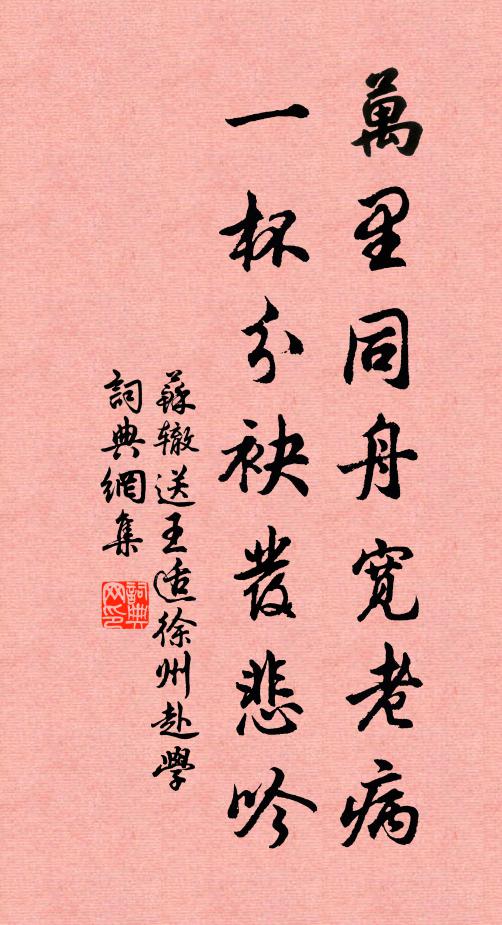 萬里同舟寛老病
一杯分袂發悲吟
蘇辙送王适徐州赴學
詞典網集
詞典网印